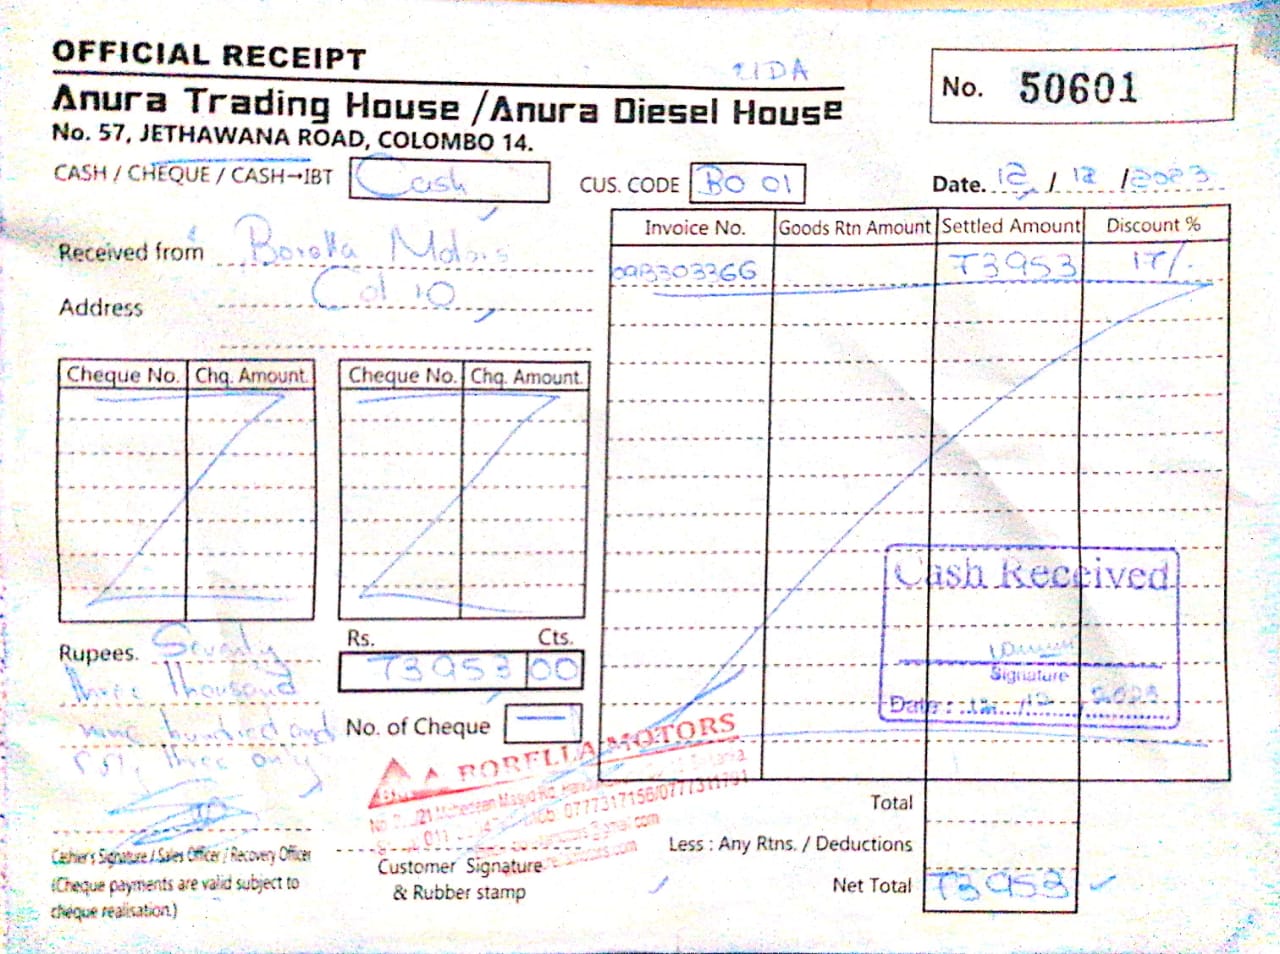 OFFICIAL RECEIPT
Anura Trading House / Anura Diesel House
No. 57, JETHAWANA ROAD, COLOMBO 14.
No. 50601
CASH / CHEQUE / CASH→IBT Cash
CUS. CODE BO 01
Date. 12 / 12 / 2023
Received from Borella Motors
Address Col 10
Invoice No. Goods Rtn Amount Settled Amount Discount %
73953 17/.
Cheque No. Chq. Amount. Cheque No. Chq. Amount.
Cash Received
Signature
Date : 12 / 12 / 2023
Rupees. Seventy
three thousand
nine hundred and
three only
Rs. Cts.
73953 00
No. of Cheque —
BORELLA MOTORS
0777317156/0777311791
Total
Less : Any Rtns. / Deductions
Net Total 73953
Cashier's Signature / Sales Officer / Recovery Officer
(Cheque payments are valid subject to
cheque realisation.)
Customer Signature
& Rubber stamp